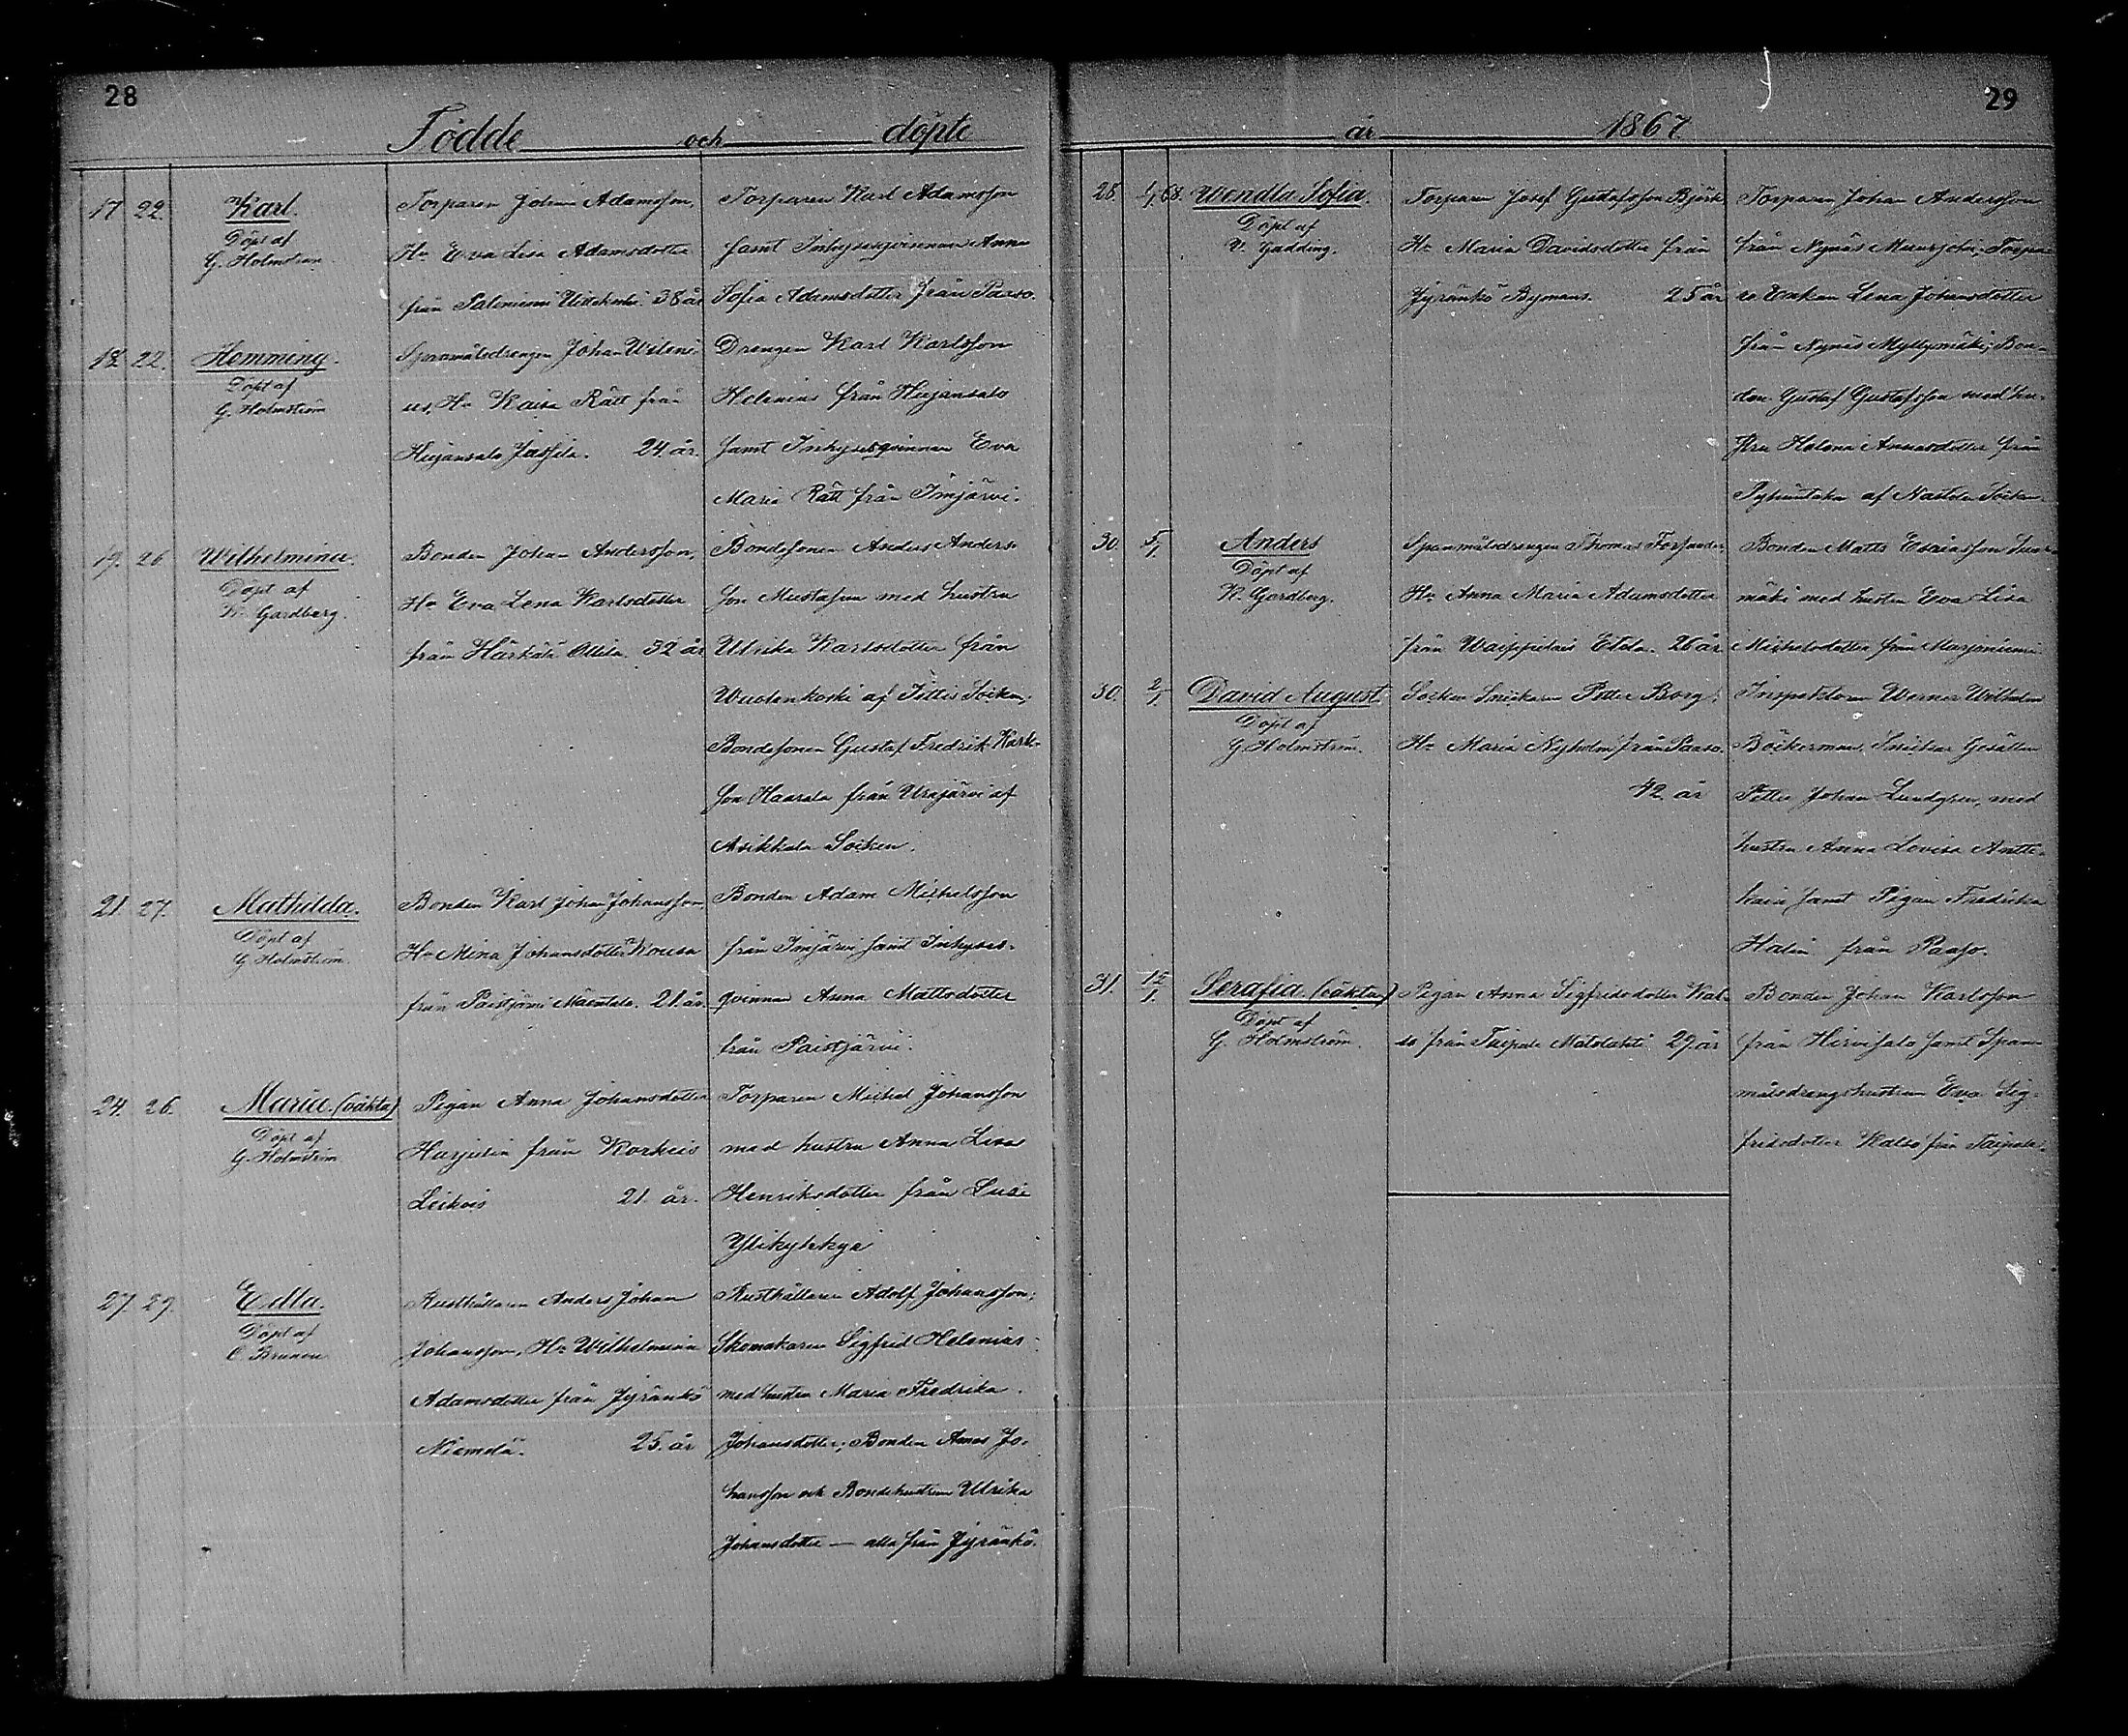 28
Födde och döpte
17 22. Karl.
Döpt af
G. Holmström
Torparen Johan Adamsson,
Hu Eva Lisa Adamsdotter
från Paleniemi 38 år
Torparen Karl Adamsson
samt Inhysesqvinnan Anna
Sofia Adamsdotter från Paaso.
18. 22. Hemming.
Döpt af
G. Holmström
Spanmålsdrengen Johan Wileni-
us, Hu Kaisa Rått från
Hujansalo Jassila. 24. år.
Drengen Karl Karlsson
Helenius från Hujansalo
samt Inhysesqvinnan Eva
Maria Rått från Imjärvi.
19. 26 Wilhelmina.
Döpt af
K. Gardberg.
Bonden Johan Andersson,
Hu Eva Lena Karlsdotter
från Härkälä Ollila. 32 år
Bondesonen Anders Anders-
son Mustapää med hustru
Ulrika Karlsdotter från
Wuolenkoski af Jittis Socken;
Bondesonen Gustaf Fredrik Karls-
son Haarala från Urajärvi af
Asikkala Socken.
21. 27. Mathilda.
Döpt af
G. Holmström.
Bonden Karl Johan Johansson,
Hu Mina Johansdotter Kousa
från Paistjärvi Mäentalo. 21. år.
Bonden Adam Michelsson
från Imjärvi samt Inhyses-
qvinnan Anna Mattsdotter
från Paistjärvi.
24. 26. Maria. (oäkta)
Döpt af
G. Holmström
Pigan Anna Johansdotter
Harjulin från Korkeis
Leikois 21. år.
Torparen Michel Johansson
med hustru Anna Lisa
Henriksdotter från Lusi
Ylikylekya
27. 29. Edla.
Döpt af
C. Brunou
Rusthållaren Anders Johan
Johansson, Hu Wilhelmina
Adamsdotter från Jyränkö
Niemelä. 25. år
Rusthållaren Adolf Johansson;
Skomakaren Sigfrid Helenius
med hustru Maria Fredrika
Johansdotter; Bonden Amos Jo-
hansson och Bondehustrun Ulrika
Johansdotter — alla från Jyränkö.
29
år 1867
28. 1/1 68. Wendla Sofia.
Döpt af
V. Gadding.
Torparen Josef Gustafsson Björk
Hu Maria Davidsdotter från
Jyränkö Bymans. 25 år
Torparen Johan Andersson
från Nynäs Muurjoki; Torpa-
re Enkan Lena Johansdotter
från Nynäs Myllymäki; Bon-
den Gustaf Gustafsson med hu-
stru Helena Annasdotter från
af Nastola Socken.
30. 5/1 Anders
Döpt af
K. Gardberg.
Spanmålsdrengen Thomas Forsander
Hu Anna Maria Adamsdotter
från Waippilais Etola. 26 år
Bonden Matts Esaiasson
mäki med hustru Eva Lisa
Michelsdotter från Marjoniemi
30. 2/1. David August.
Döpt af
G. Holmström.
Socken Snickaren Petter Borg;
Hu Maria Nyholm från Paaso.
42. år
Inspektoren Werner Wilhelm
Böckerman, Snickar Gesällen
Petter Johan Lundgren, med
hustru Anna Lovisa Antti-
kain samt Pigan Fredrika
Hedin från Paaso.
31. 12/1. Serafia. (oäkta)
Döpt af
G. Holmström.
Pigan Anna Sigfridsdotter Kal-
so från Taipale Matolahti 29. år
Bonden Johan Karlsson
från Hirvisalo samt Span-
målsdrengshustrun Eva Sig-
fridsdotter Kalso från Taipale.